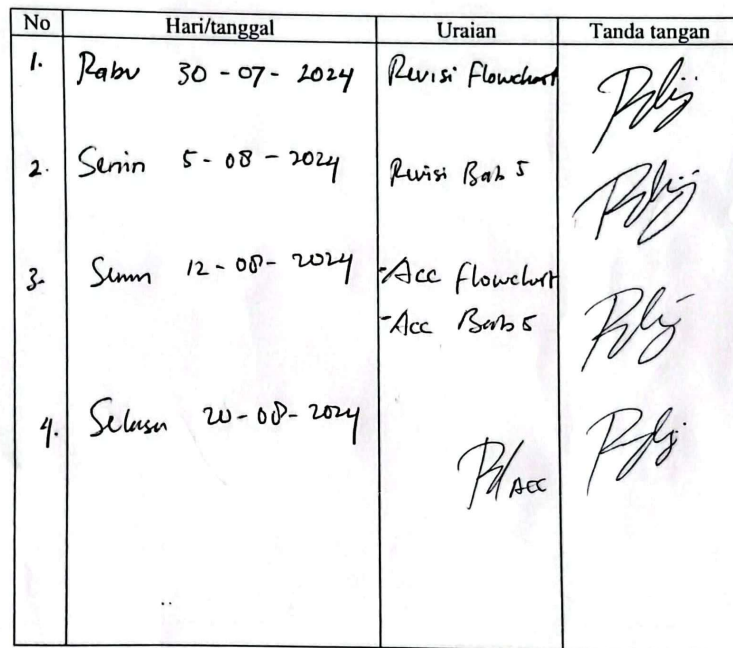 No Hari/tanggal Uraian Tanda tangan
1. Rabu 30-07-2024 Revisi Flowchart
2. Senin 5-08-2024 Revisi Bab 5
3. Senin 12-08-2024 -Acc flowchart
-Acc Bab 5
4. Selasa 20-08-2024
ACC